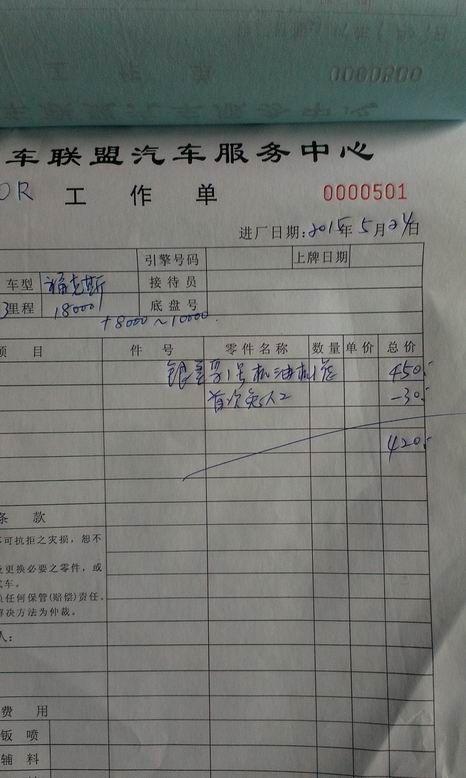 0000500
车联盟汽车服务中心
OR 工作单 0000501
进厂日期:2015年5月24日
引擎号码 上牌日期
车型 福克斯 接待员
里程 18000 底盘号
+8000~10000
项目 件号 零件名称 数量 单价 总价
1号机油机滤 450
首次免人工 -30
420
条款
可抗拒之灾损，恕不
更换必要之零件，或
车。
任何保管(赔偿)责任。
解决方法为仲裁。
人:
费用
钣喷
辅料